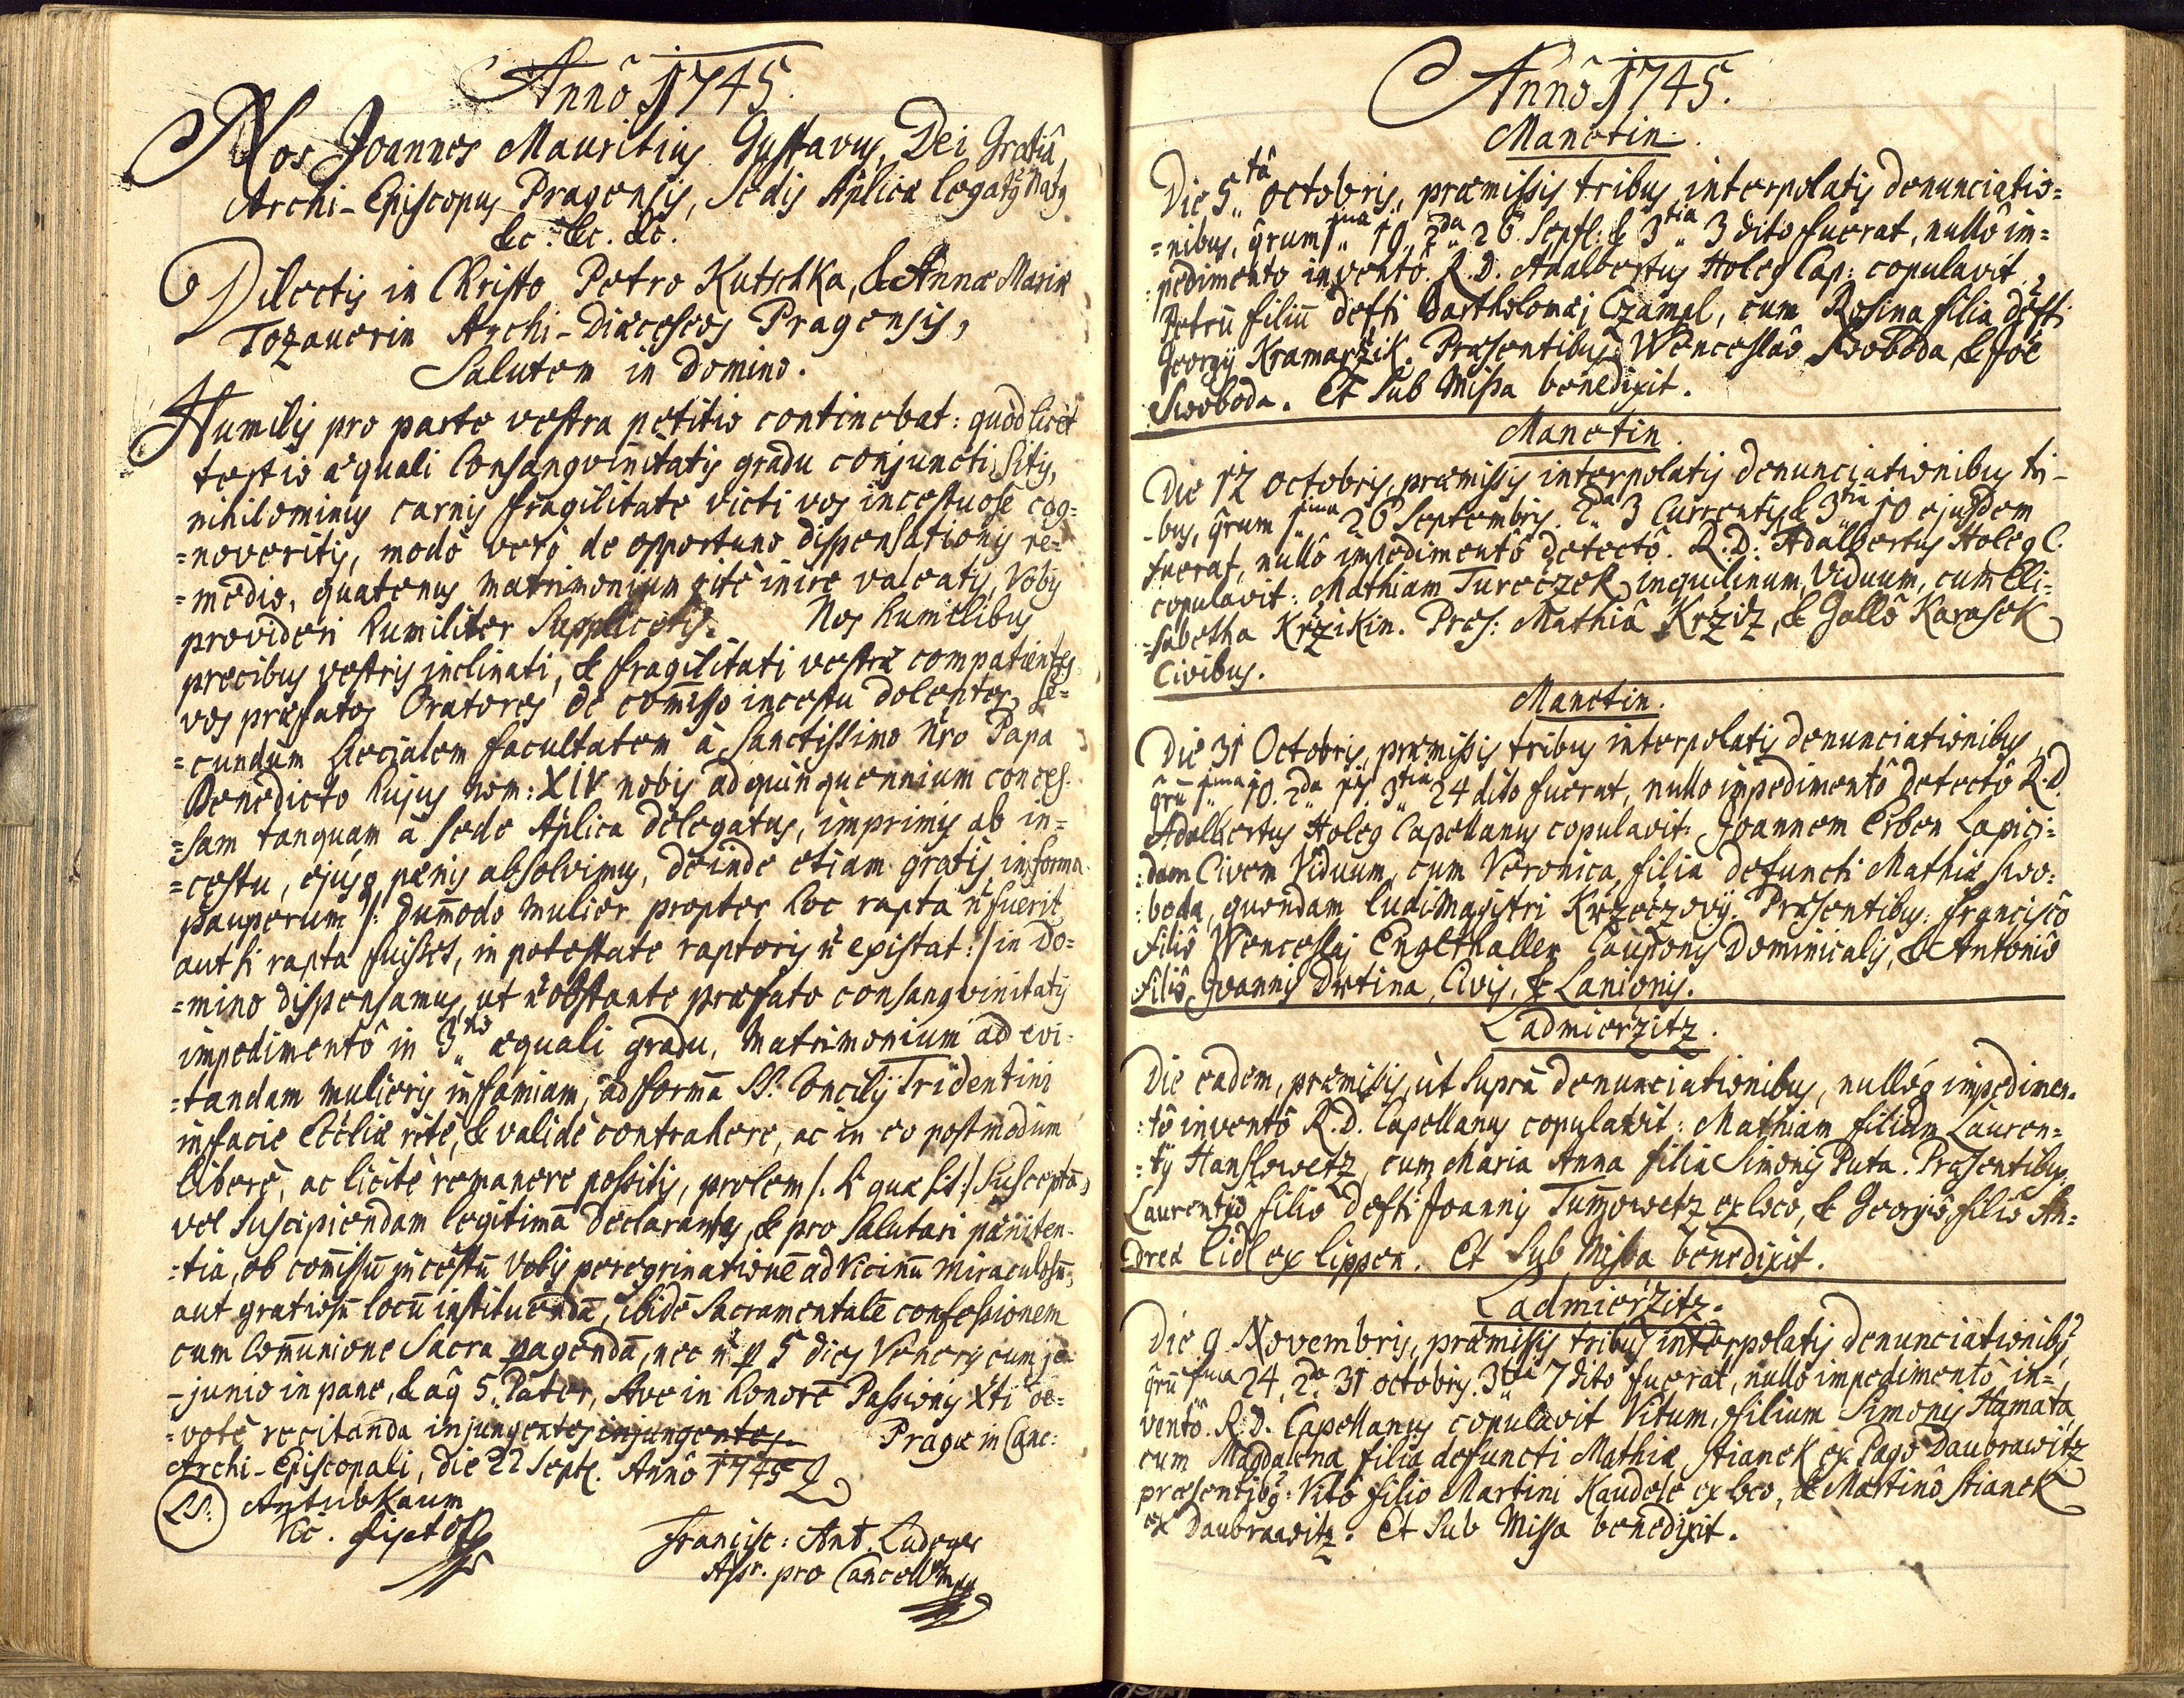 Annô 1745.
Nos Joannes Mauritius Gustavus, Dei Gratiâ,
Archi-Episcopus Pragensis, Sedis Aplicæ legatꝰ Natꝰ
&c: &c. &c.
Dilectis in Christo Petro Kutschka, & Annæ Mariæ
Tozauerin Archi-Diæceseos Pragensis,
Salutem in Domino.
Humilis pro parte vestra petitio continebat: quòd licèt
tertio æquali Consangvinitatis gradu conjuncti sitis,
nihilominus carnis fragilitate victi vos incestuose cog=
=noveritis, modò verò de opportuno dispensationis re=
=medio, quatenus matrimonium ritè inire valeatis, Vobis
provideri humiliter Supplicetis. Nos humilibus
precibus vestris inclinati, & fragilitati vestræ compatientes
vos præfatos Oratores de com̄isso incestu dolentes, se=
=cundum specialem facultatem à Sanctissimo Nr̄o Papa
Benedicto hujus nom: XIV nobis ad quinquennium conces=
=sam tanquam à sede Aplica delegatus, imprimis ab in=
=cestu, ejusq pænis absolvimus, deinde etiam gratis in forma
pauperum /: dum̄odo mulier propter hoc rapta n̄ fuerit,
aut si rapta fuisset, in potestate raptoris n̄ existat :/ in Do=
=mino dispensamus, ut n̄ obstante præfato consangvinitatis
impedimentô in 3tio æquali gradu, Matrimonium ad evi=
=tandam mulieris infamiam, ad formā SS. Concilij Tridentini
in facie Eccliæ ritè, & validè contrahere, ac in eo postmodum
liberè, ac licitè remanere possitis, prolem /: si quæ sit :/ Susceptā,
vel suscipiendam legitimā declarantes, & pro Salutari pæniten=
=tia, ob com̄issū incestū Vobis peregrinationē ad vicinū Miraculosū,
aut gratiosū locū instituendā, ibidē Sacramentalē confessionem
cum Com̄unione Sacra pagendā, nec n̄ p 5 dies Veneris cum je=
=junio in pane, & aq 5. Pater, Ave in honorē Passionis Xti de=
=votè recitanda injungentes injungentes. Pragæ in Canc:
Archi-Episcopali, die 22 Septt. Annô 1745
LS: Ant: 
Vic.
Francisc: Ant. Ludeger
Assr. pro Cancell mpia
Annô 1745.
Manetin.
Die 5tâ octobris, præmissis tribus interpolatis denunciatio=
=nibus, qrum 1ma 19. 2da 26. Septb. & 3tia 3 dito fuerat, nullô im=
=pedimento inventô. R.D. Adalbertus Holeg Cap: copulavit
Petrū filiū defti Bartholomæi Czampl, cum Rosina filia defti
Georgij Kramarzik. Præsentibus: Wenceslao Swoboda & Joē
Swoboda. Et sub Missa benedixit.
Manetin.
Die 12 octobris, præmissis interpolatis denunciationibus tri-
-bus, qrum 1ma 26 Septembris. 2da 3 Currentis & 3tia 10 ejusdem
fuerat, nullô impedimentô detectô. R.D. Adalbertus Holeg C.
copulavit: Mathiam Tureczek inquilinum, Viduum, cum Eli=
=sabetha Krzikin. Præs: Mathiâ Krziz, & Gallô Karasek
Civibus.
Manetin.
Die 31 Octobris, præmissis tribus interpolatis denunciationibus,
qrū 1ma 10. 2da 17. 3tia 24 dito fuerat, nullo impedimentô detectô R.D.
Adalbertus Holeg Capellanus copulavit: Joannem Erben Lapici=
=dam Civem Viduum, cum Veronica, filia defuncti Mathiæ Swo=
=boda, quondam ludi Magistri Krzeczovij. Præsentibus: Franciscô
filiô Wenceslaj Englthaller Cauponis Dominicalis, & Antoniô
filiô Joannis Drtina, Civis, & Lanionis.
Ladmierzitz.
Die eadem, præmissis, ùt suprà denunciationibus, nullôq impedimen=
=tô inventô R.D. Capellanus copulavit: Mathiam filium Lauren=
=tij Hanslowetz, cum Maria Anna filia Simonis Puta. Præsentibus:
Laurentiô filiô defti Joannis Tumowetz ex loco, & Georgiô, filiô An=
=dreæ Lidl ex Lippen. Et Sub Missa benedixit.
Ladmierzitz.
Die 9 Novembris, præmissis tribus interpolatis denunciationibꝰ
qrū 1ma 24. 2da 31 octobris. 3tia 7 dito fuerat, nullô impedimentô in=
ventô. R.D. Capellanus copulavit Vitum, filium Simonis Hamata,
cum Magdalena filia defuncti Mathiæ Stianek ex Pago Daubrawitz
præsentibꝰ: Vitô filio Martini Kaudele ex loco, & Martinô Stianek
ex Daubrawitz. Et sub Missa benedixit.